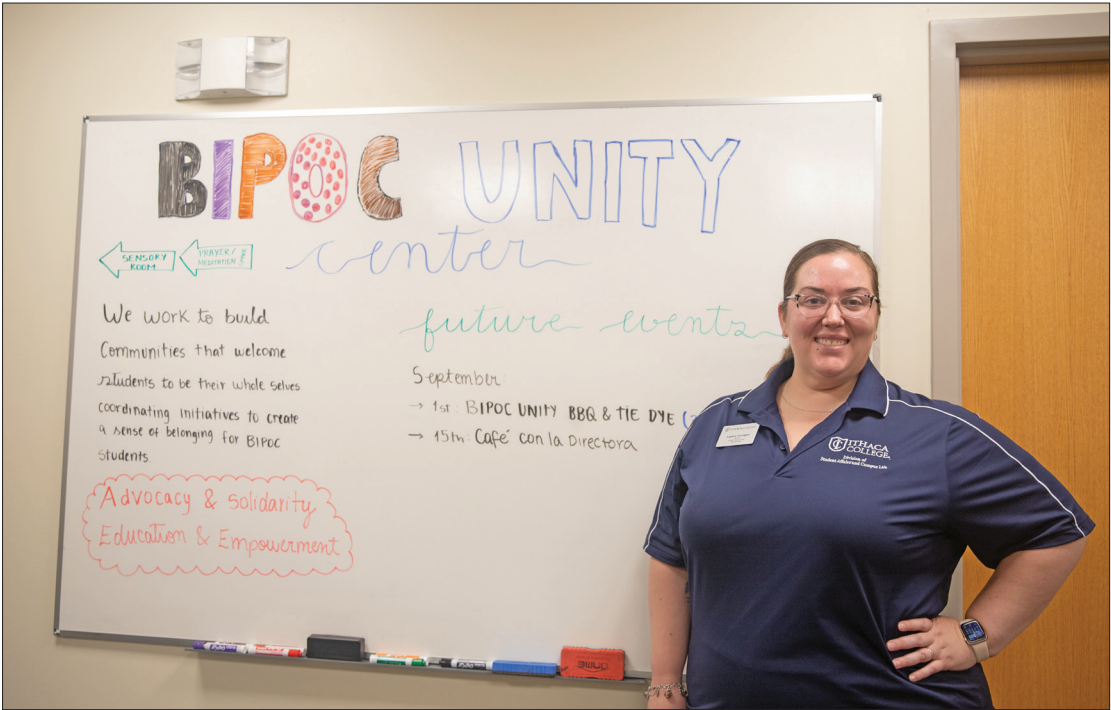 BIPOC UNITY
center
SENSORY
ROOM
PRAYER/
MEDITATION
We work to build
Communities that welcome
students to be their whole selves
coordinating initiatives to create
a sense of belonging for BIPOC
students
Advocacy & solidarity
Education & Empowerment
future events
September:
→ 1st: BIPOC UNITY BBQ & TIE DYE
→ 15th: Café con la Directora
ITHACA
COLLEGE
Division of
Student Affairs and Campus Life
EXPO